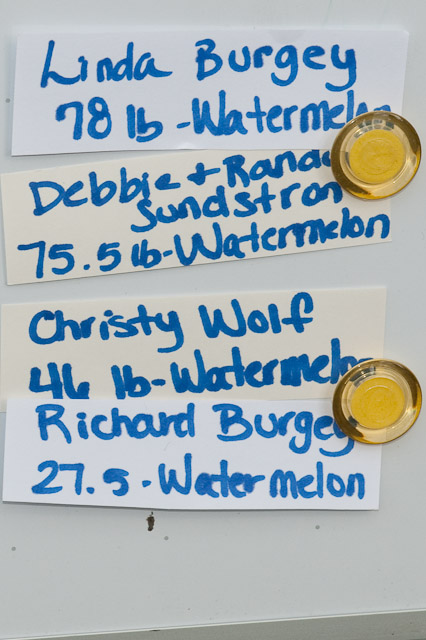 Linda Burgey
78 lb - Watermelon
Debbie +
Sundstron
75.5 lb - Watermelon
Christy Wolf
46 lb - Watermelon
Richard Burgey
27.5 - Watermelon